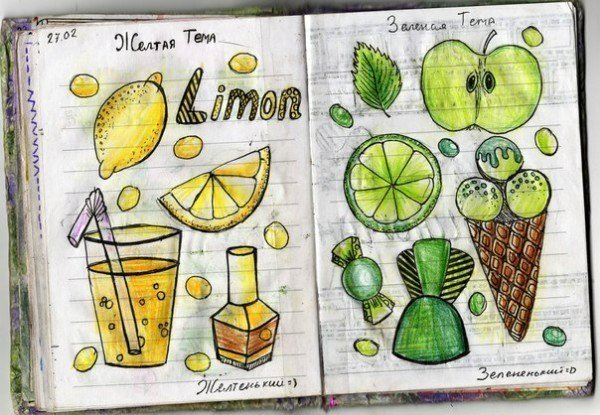 27.02
Желтая Тема
Limon
Желтенький =)
Зеленая Тема
Зелененький =D